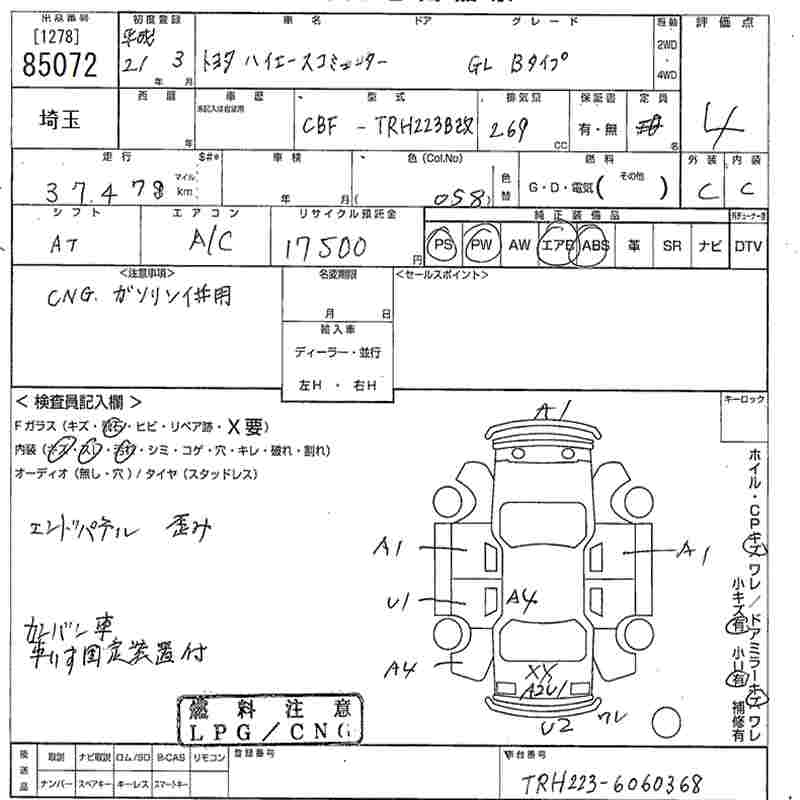 出品番号 初度登録 車名 ドア グレード 駆動 評価点
[1278] 平成
85072 21 3 トヨタ ハイエースコミューター GL Bタイプ 2WD・4WD
年 月
埼玉 西暦 車歴 型式 排気量 保証書 定員 4
未記入は自家用
CBF - TRH223B改 269 有・無
年 CC 名
走行 S#* 車検 色(Col.No) 燃料 外装 内装
37.478 マイル km 年 月( 058) 色替 G・D・電気( その他 ) C C
シフト エアコン リサイクル預託金 純正装備品
AT A/C 17500円 PS PW AW エアB ABS 革 SR ナビ DTV
<注意事項> 名変期限 <セールスポイント>
CNG. ガソリン併用
月 日
輸入車
ディーラー・並行
左H・右H
<検査員記入欄> キーロック
Fガラス(キズ・飛石・ヒビ・リペア跡・X要)
内装(キズ・スレ・汚れ・シミ・コゲ・穴・キレ・破れ・割れ)
オーディオ(無し・穴)/タイヤ(スタッドレス)
A1
エンドパネル 歪み
A1 A1
U1 A4
A4
XX
A2U1
U2 ワレ
車いす固定装置付
ホイル・CPキズ ワレ/ドアミラーキズ ワレ
小キズ有 小U有 補修有
燃料注意
LPG/CNG
後送品 取説 ナビ取説 ロム/SD B-CAS リモコン 登録番号 車台番号
ナンバー スペアキー キーレス スマートキー
TRH223-6060368